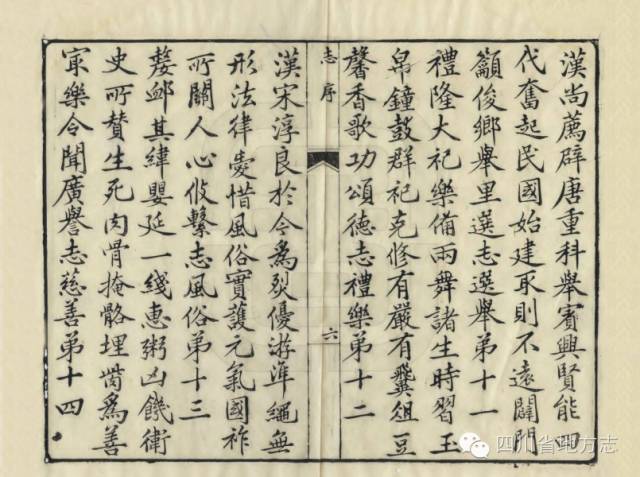 漢尚薦辟唐重科舉賓興賢能四
代奮起民國始建取則不遠闢門
籲俊鄉舉里選志選舉第十一
禮隆大祀樂備雨舞諸生時習玉
帛鐘鼓群祀克修有嚴有龔俎豆
馨香歌功頌德志禮樂第十二
志序
六
漢宋淳良於今為烈優游準繩無
形法律愛惜風俗實護元氣國祚
所關人心攸繫志風俗第十三
嫠卹其緯嬰延一綫惠粥凶饑衛
史所贊生死肉骨掩骼埋胔為善
寂樂令聞廣譽志慈善第十四
四川省地方志